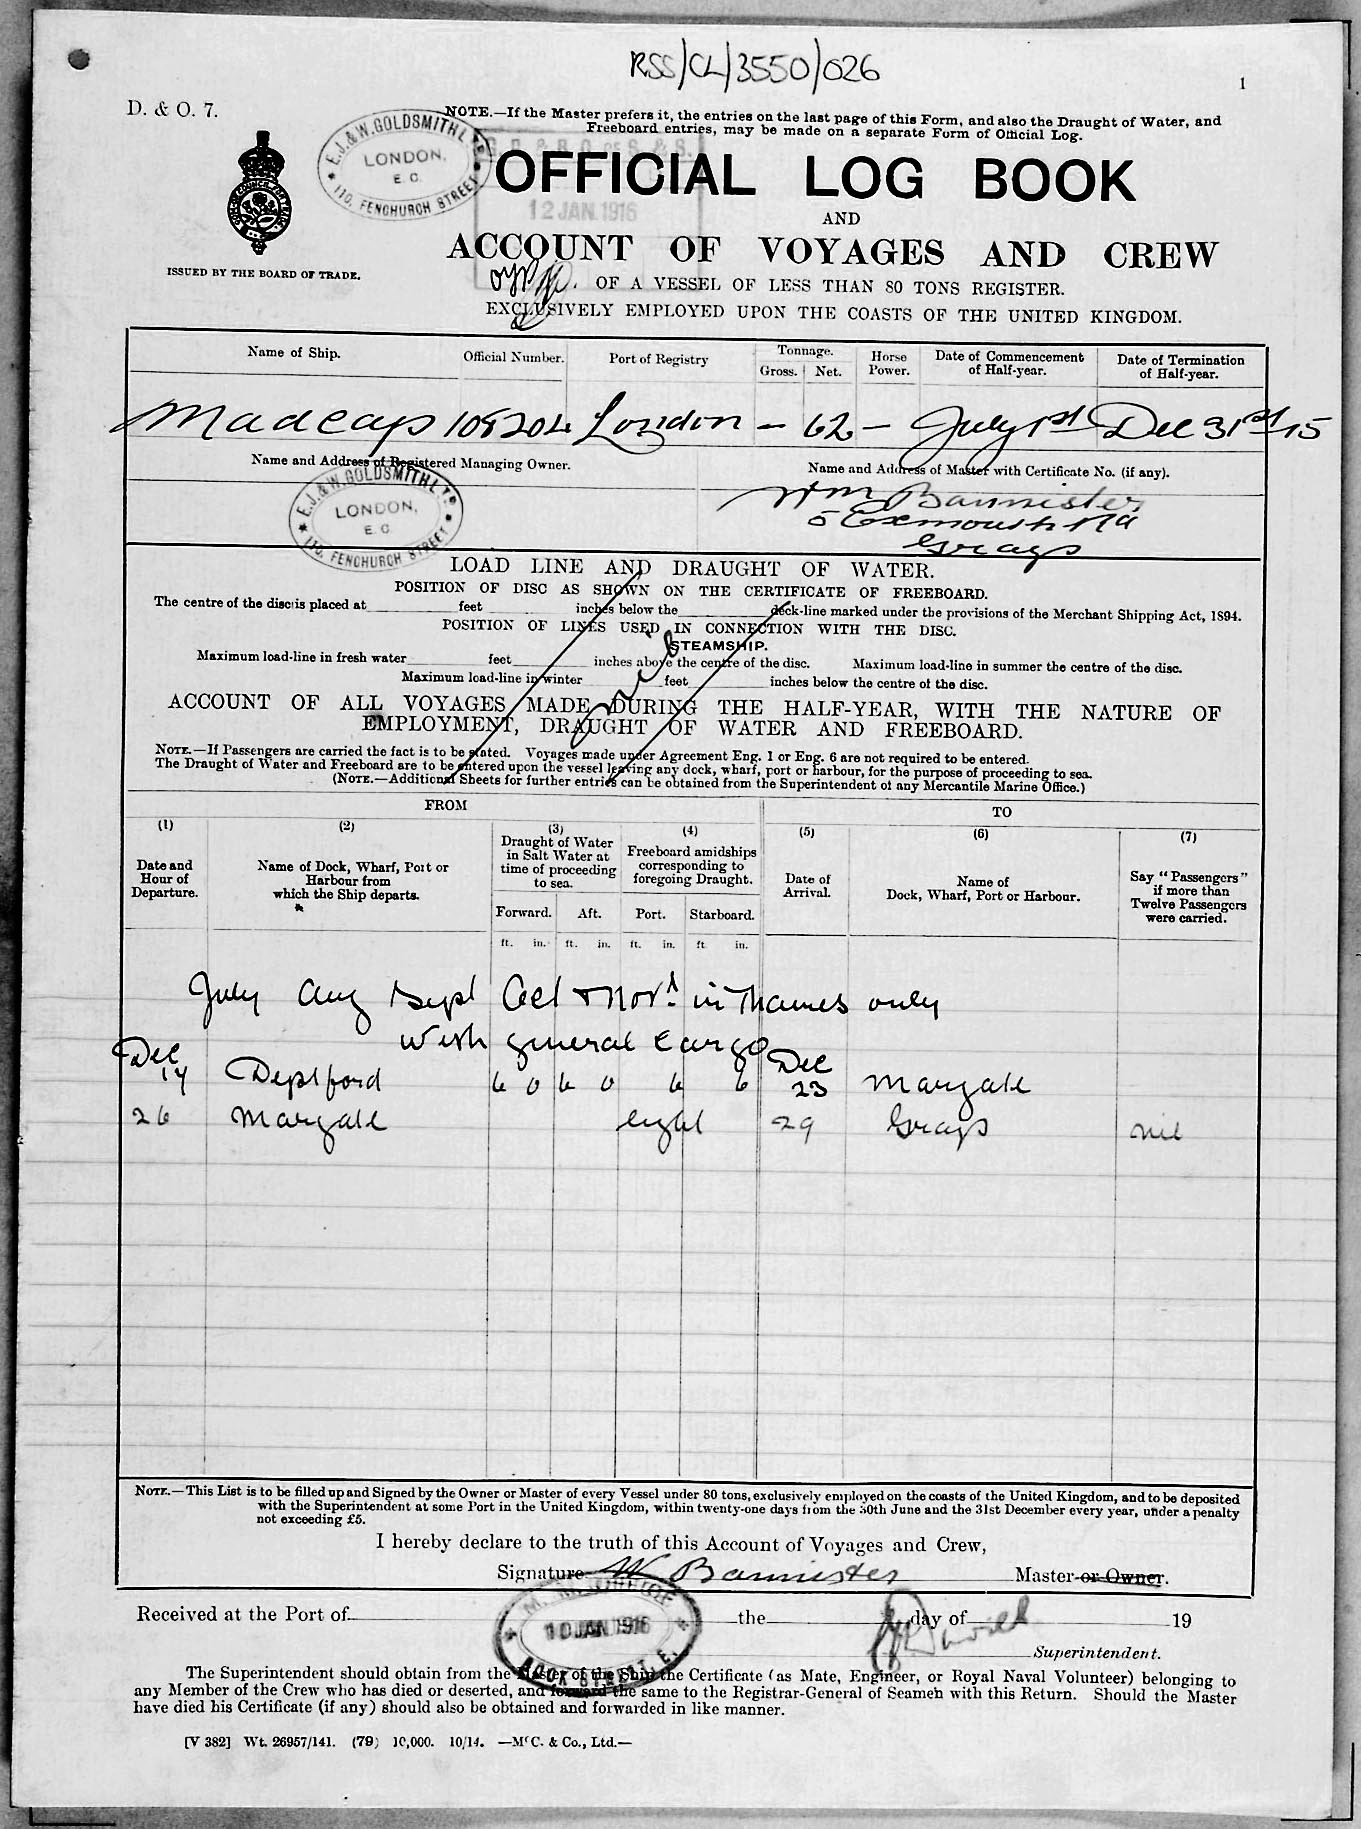 RSS/CL/3550/026
1
D. & O. 7.
NOTE.—If the Master prefers it, the entries on the last page of this Form, and also the Draught of Water, and
Freeboard entries, may be made on a separate Form of Official Log.
E.J.& W. GOLDSMITH LTD
LONDON.
E.C.
110, FENCHURCH STREET
12 JAN. 1916
OFFICIAL LOG BOOK
AND
ACCOUNT OF VOYAGES AND CREW
ISSUED BY THE BOARD OF TRADE.
OF A VESSEL OF LESS THAN 80 TONS REGISTER.
EXCLUSIVELY EMPLOYED UPON THE COASTS OF THE UNITED KINGDOM.
Name of Ship. Official Number. Port of Registry Tonnage. Gross. Net. Horse Power. Date of Commencement of Half-year. Date of Termination of Half-year.
Madcap 108204 London — 62 — July 1st Dec 31st 15
Name and Address of Registered Managing Owner. Name and Address of Master with Certificate No. (if any).
E.J.& W. GOLDSMITH LTD
LONDON,
E.C.
110, FENCHURCH STREET
Wm Bannister
5 Exmouth Rd
Grays
LOAD LINE AND DRAUGHT OF WATER.
POSITION OF DISC AS SHOWN ON THE CERTIFICATE OF FREEBOARD.
The centre of the disc is placed at feet inches below the deck-line marked under the provisions of the Merchant Shipping Act, 1894.
POSITION OF LINES USED IN CONNECTION WITH THE DISC.
STEAMSHIP.
Maximum load-line in fresh water feet inches above the centre of the disc. Maximum load-line in summer the centre of the disc.
Maximum load-line in winter feet inches below the centre of the disc.
nil
ACCOUNT OF ALL VOYAGES MADE DURING THE HALF-YEAR, WITH THE NATURE OF
EMPLOYMENT, DRAUGHT OF WATER AND FREEBOARD.
NOTE.—If Passengers are carried the fact is to be stated. Voyages made under Agreement Eng. 1 or Eng. 6 are not required to be entered.
The Draught of Water and Freeboard are to be entered upon the vessel leaving any dock, wharf, port or harbour, for the purpose of proceeding to sea.
(NOTE.—Additional Sheets for further entries can be obtained from the Superintendent of any Mercantile Marine Office.)
FROM TO
(1) (2) (3) (4) (5) (6) (7)
Date and Hour of Departure.
Name of Dock, Wharf, Port or Harbour from which the Ship departs.
Draught of Water in Salt Water at time of proceeding to sea.
Freeboard amidships corresponding to foregoing Draught.
Date of Arrival.
Name of Dock, Wharf, Port or Harbour.
Say "Passengers" if more than Twelve Passengers were carried.
Forward. Aft. Port. Starboard.
ft. in. ft. in. ft. in. ft. in.
July Aug Sept Oct & Nov. in Thames only
with general cargo
Dec 14 Deptford 6 0 6 0 6 6 Dec 23 Margate
26 Margate light 29 Grays nil
NOTE.—This List is to be filled up and Signed by the Owner or Master of every Vessel under 80 tons, exclusively employed on the coasts of the United Kingdom, and to be deposited
with the Superintendent at some Port in the United Kingdom, within twenty-one days from the 30th June and the 31st December every year, under a penalty
not exceeding £5.
I hereby declare to the truth of this Account of Voyages and Crew,
Signature W Bannister Master or Owner.
Received at the Port of the day of 19
10 JAN 1916
DOCK STREET E.
Superintendent.
The Superintendent should obtain from the Master of the Ship the Certificate (as Mate, Engineer, or Royal Naval Volunteer) belonging to
any Member of the Crew who has died or deserted, and forward the same to the Registrar-General of Seamen with this Return. Should the Master
have died his Certificate (if any) should also be obtained and forwarded in like manner.
[V 382] Wt. 26957/141. (79) 10,000. 10/14. —McC. & Co., Ltd.—